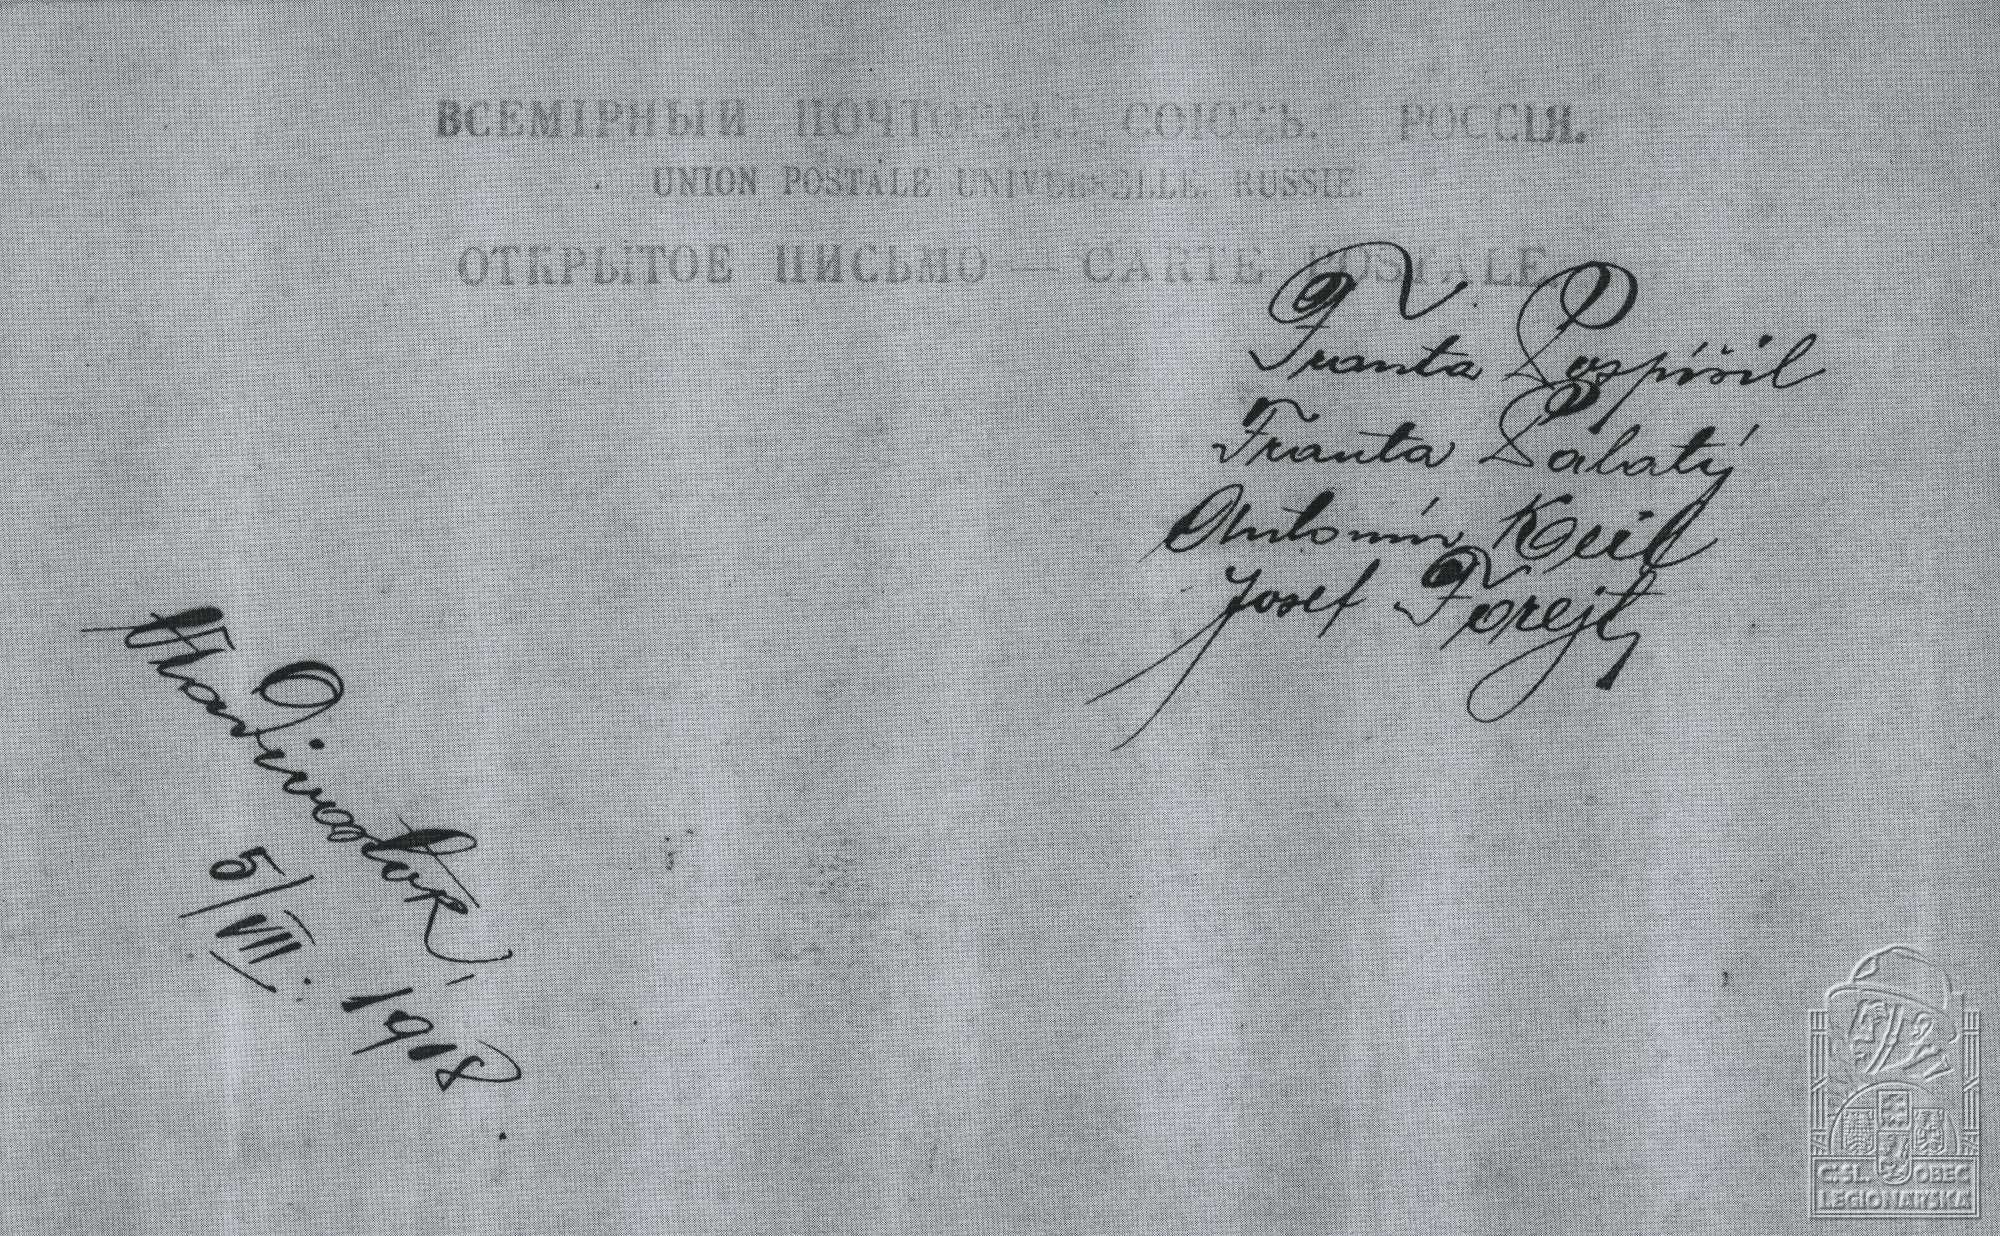 ВСЕМІРНЫЙ ПОЧТОВЫЙ СОЮЗЪ. РОССІЯ.
UNION POSTALE UNIVERSELLE. RUSSIE.
ОТКРЫТОЕ ПИСЬМО — CARTE POSTALE.
Franta Pospíšil
Franta Pabatý
Antonín Keil
Josef Forejt
5/VII. 1918
Č:SL. OBEC
LEGIONÁŘSKÁ